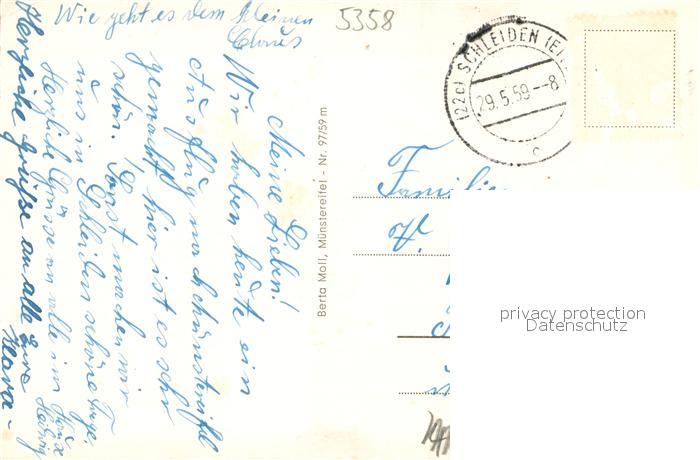 Wie geht es dem kleinen
Claus
5358
Meine Lieben!
Wir haben heute ein
Ausflug nach Münstereifel
gemacht, hier ist es sehr
schön. Sonst machen wir
uns in Schleiden schöne Tage.
Herzliche Grüsse an alle im Haus
Hedwig
Herzliche Grüße an alle Eure
Berta Moll, Münstereifel - Nr. 97/59 m
(22c) SCHLEIDEN (EI
29.5.59--8
c
Familie
W.
privacy protection
Datenschutz